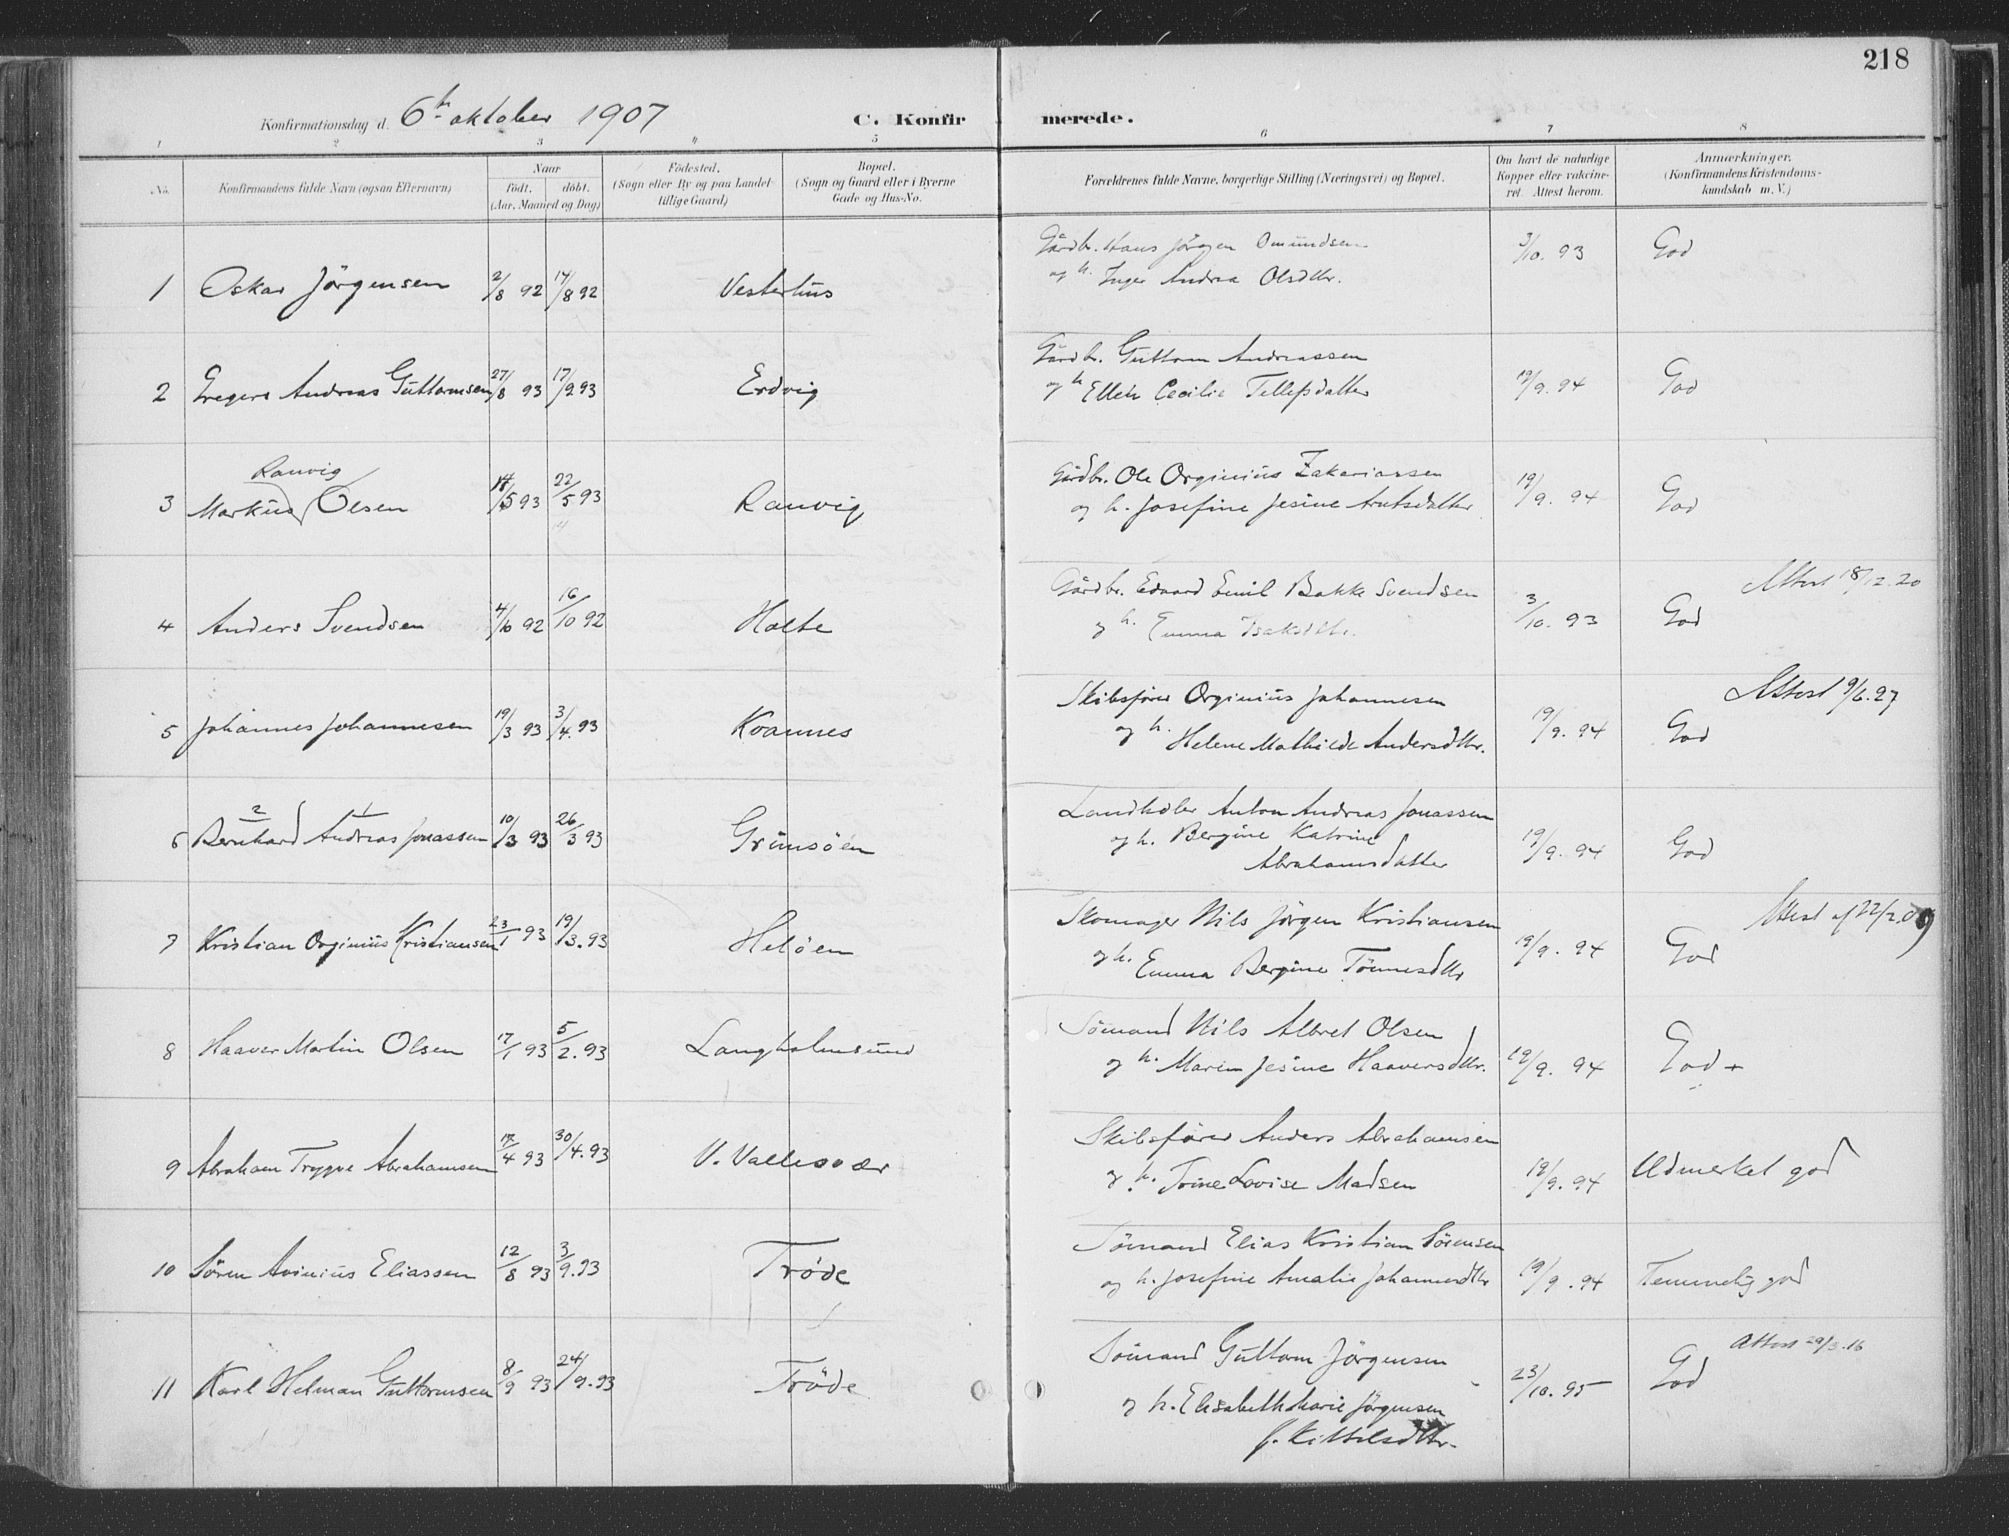 218
Konfirmationsdag d. 6te oktober 1907
C. Konfirmerede.
1 2 3 4 5 6 7 8
No.
Konfirmandens fulde Navn (ogsaa Efternavn)
Naar
født. døbt.
(Aar, Maaned og Dag)
Fødested.
(Sogn eller By og paa Landet
tillige Gaard)
Bopæl.
(Sogn og Gaard eller i Byerne
Gade og Hus-No.
Forældrenes fulde Navne, borgerlige Stilling (Næringsvei) og Bopæl.
Om havt de naturlige
Kopper eller vakcine-
ret. Attest herom.
Anmærkninger.
(Konfirmandens Kristendoms-
kundskab m. V.)
1 Oskar Jörgensen 2/8 92 14/8 92 Vesterhus
Gårdbr. Hans Jörgen Omundsen
og h. Inger Andrea Olsdtr.
3/10. 93 God
2 Gregers Andreas Guttormsen 27/8 93 17/9 93 Erdvig
Gårdbr. Guttorm Andreassen
og h Ellen Cecilie Tellefsdatter
19/9. 94 God
Ranvig
3 Markus Olsen 14/5 93 22/5 93 Ranvig
Gårdbr. Ole Orginius Zakariassen
og h. Josefine Jesine Arntsdatter
19/9. 94 God
4 Anders Svendsen 4/10 92 16/10 92 Holte
Gårdbr. Edvard Emil Bakke Svendsen
og h. Emma Isaksdtr.
3/10. 93 God
Attest 18/12. 20
5 Johannes Johannesen 19/3 93 3/4. 93 Kvannes
Skibsfører Orginius Johannesen
og h. Helene Mathilde Andersdtr.
19/9. 94 God
Attest 9/6. 27
2 1
6 Bernhard Andreas Jonassen 10/3 93 26/3 93 Grimsöen
Landhdler Anton Andreas Jonassen
og h. Bergine Katrine
Abrahamsdatter
19/9. 94 God
7 Kristian Orginius Kristiansen 23/1 93 19/3. 93 Helöen
Skomager Nils Jörgen Kristiansen
og h. Emma Bergine Tönnesdtr
19/9. 94 God
Attest af 22/2.09
8 Haaver Martin Olsen 17/1 93 5/2. 93 Langholmsund
Sömand Nils Albret Olsen
og h. Maren Jesine Haaversdtr.
19/9. 94 God +
9 Abraham Trygve Abrahamsen 17/4 93 30/4. 93 V. Vallesvær
Skibsförer Anders Abrahamsen
og h. Trine Lovise Madsen
19/9. 94 Udmerket god
10 Sören Avinius Eliassen 12/8 93 3/9. 93 Tröde
Sömand Elias Kristian Sörensen
og h. Josefine Amalie Johannesdtr
19/9. 94 Temmelig god
11 Karl Helman Guttormsen 8/9 93 24/9. 93 Tröde
Sömand Guttorm Jörgensen
og h. Elisabeth Marie Jörgensen
f. Kittelsdtr.
23/10. 95 God
Attest 29/3. 16